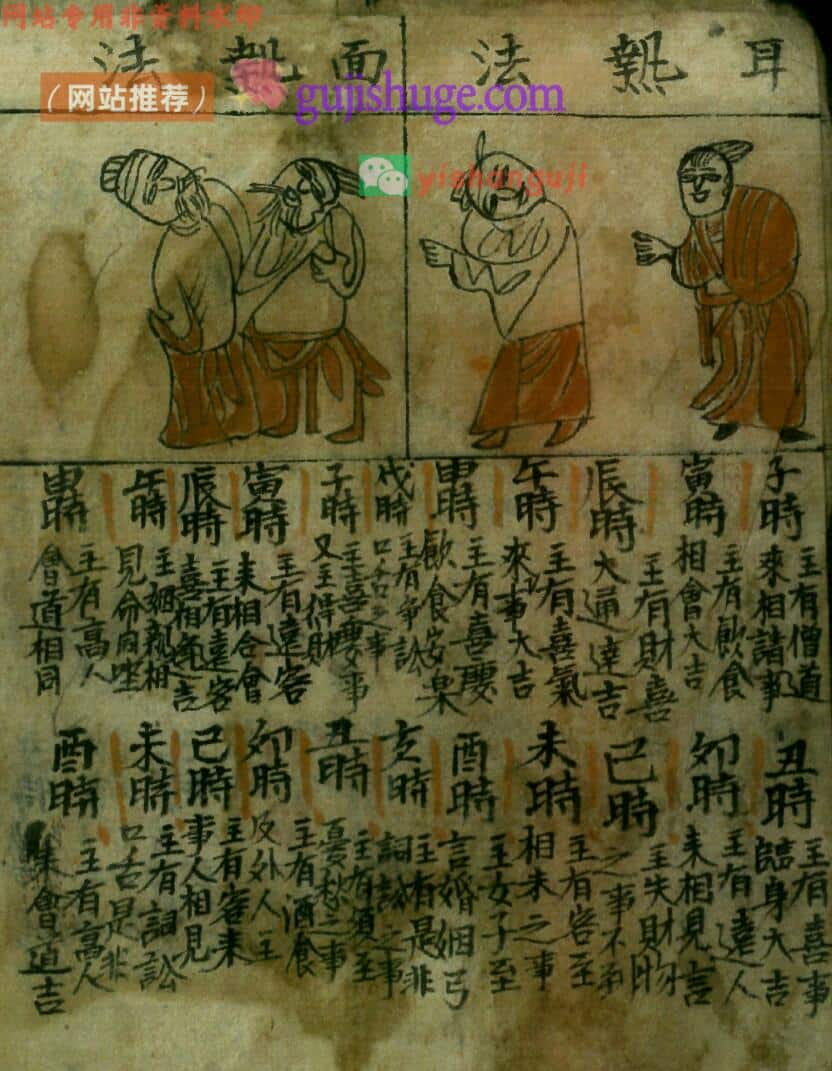 网站专用非资料水印
(网站推荐)
gujishuge.com
yishanguji
耳熱法
子時
主有僧道
來相請事
寅時
主有飲食
相會大吉
辰時
主有財喜
大通達吉
午時
主有喜氣
來事大吉
申時
主有喜慶
飲食安樂
戌時
主有爭訟
口舌之事
丑時
主有喜事
臨身大吉
卯時
主有遠人
來相見言
巳時
主失財物
之事不利
未時
主有客至
相未之事
酉時
主女子至
言婚姻
亥時
主有是非
詞訟之事
面熱法
子時
主喜慶事
又主得財
寅時
主有遠客
來相合會
辰時
主有遠客
喜相逢吉
午時
主姻親相
見命同坐
申時
主有高人
會道相同
丑時
主有須至
憂愁之事
卯時
主有酒食
及外人
巳時
主有客來
事人相見
未時
主有詞訟
口舌是非
酉時
主有高人
來會道吉